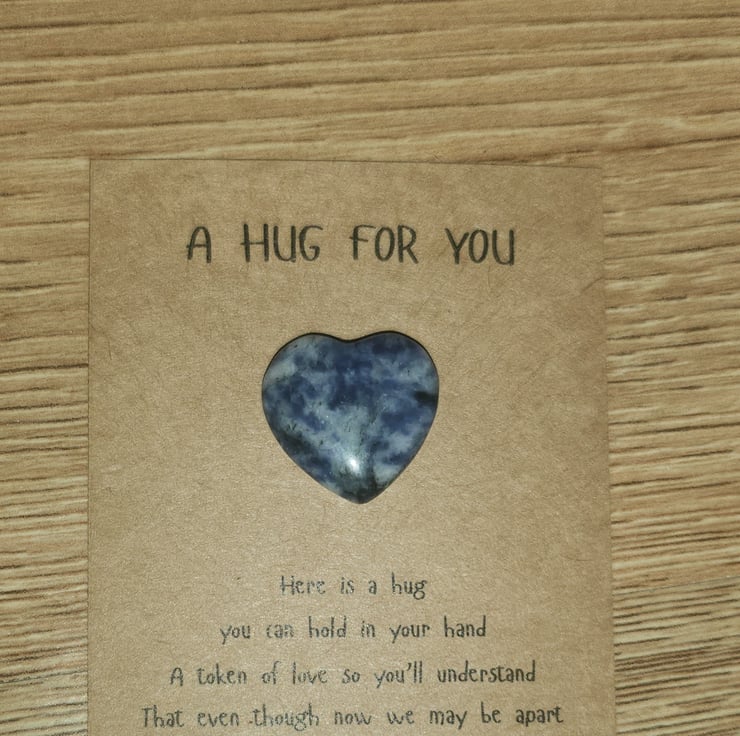 A HUG FOR YOU
Here is a hug
you can hold in your hand
A token of love so you'll understand
That even though now we may be apart